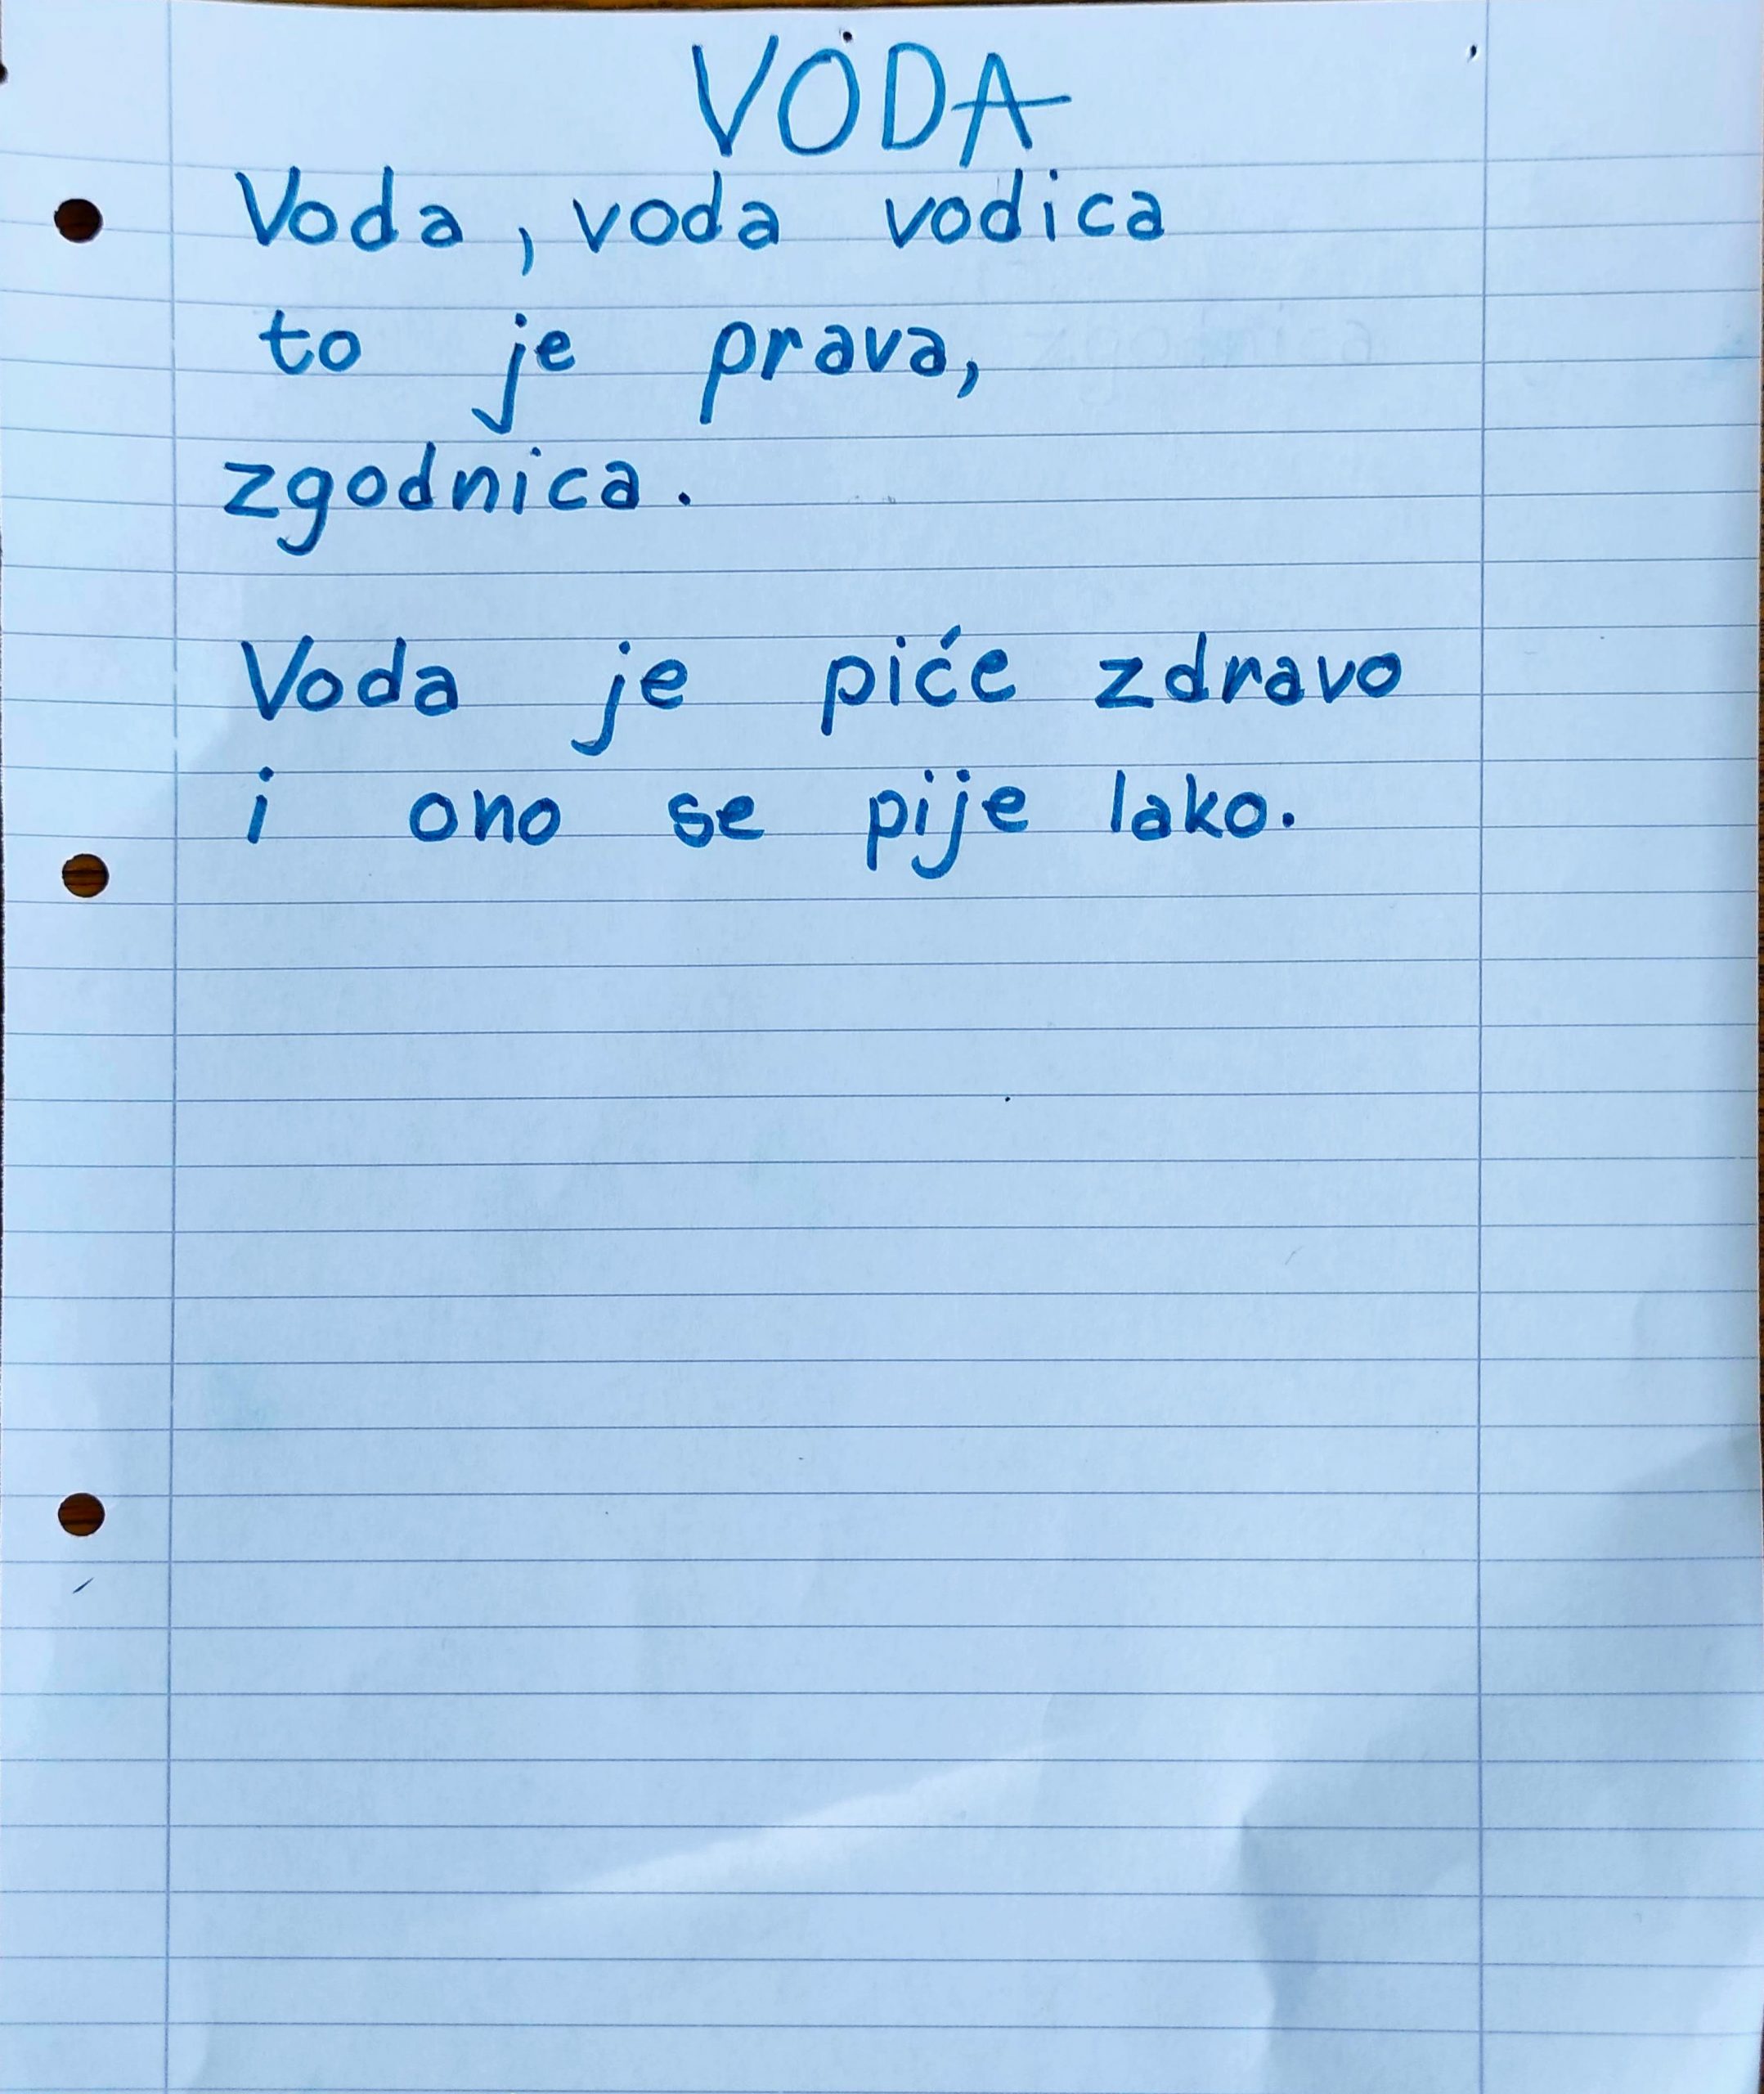 VODA
Voda, voda vodica
to je prava,
zgodnica.
Voda je piće zdravo
i ono se pije lako.